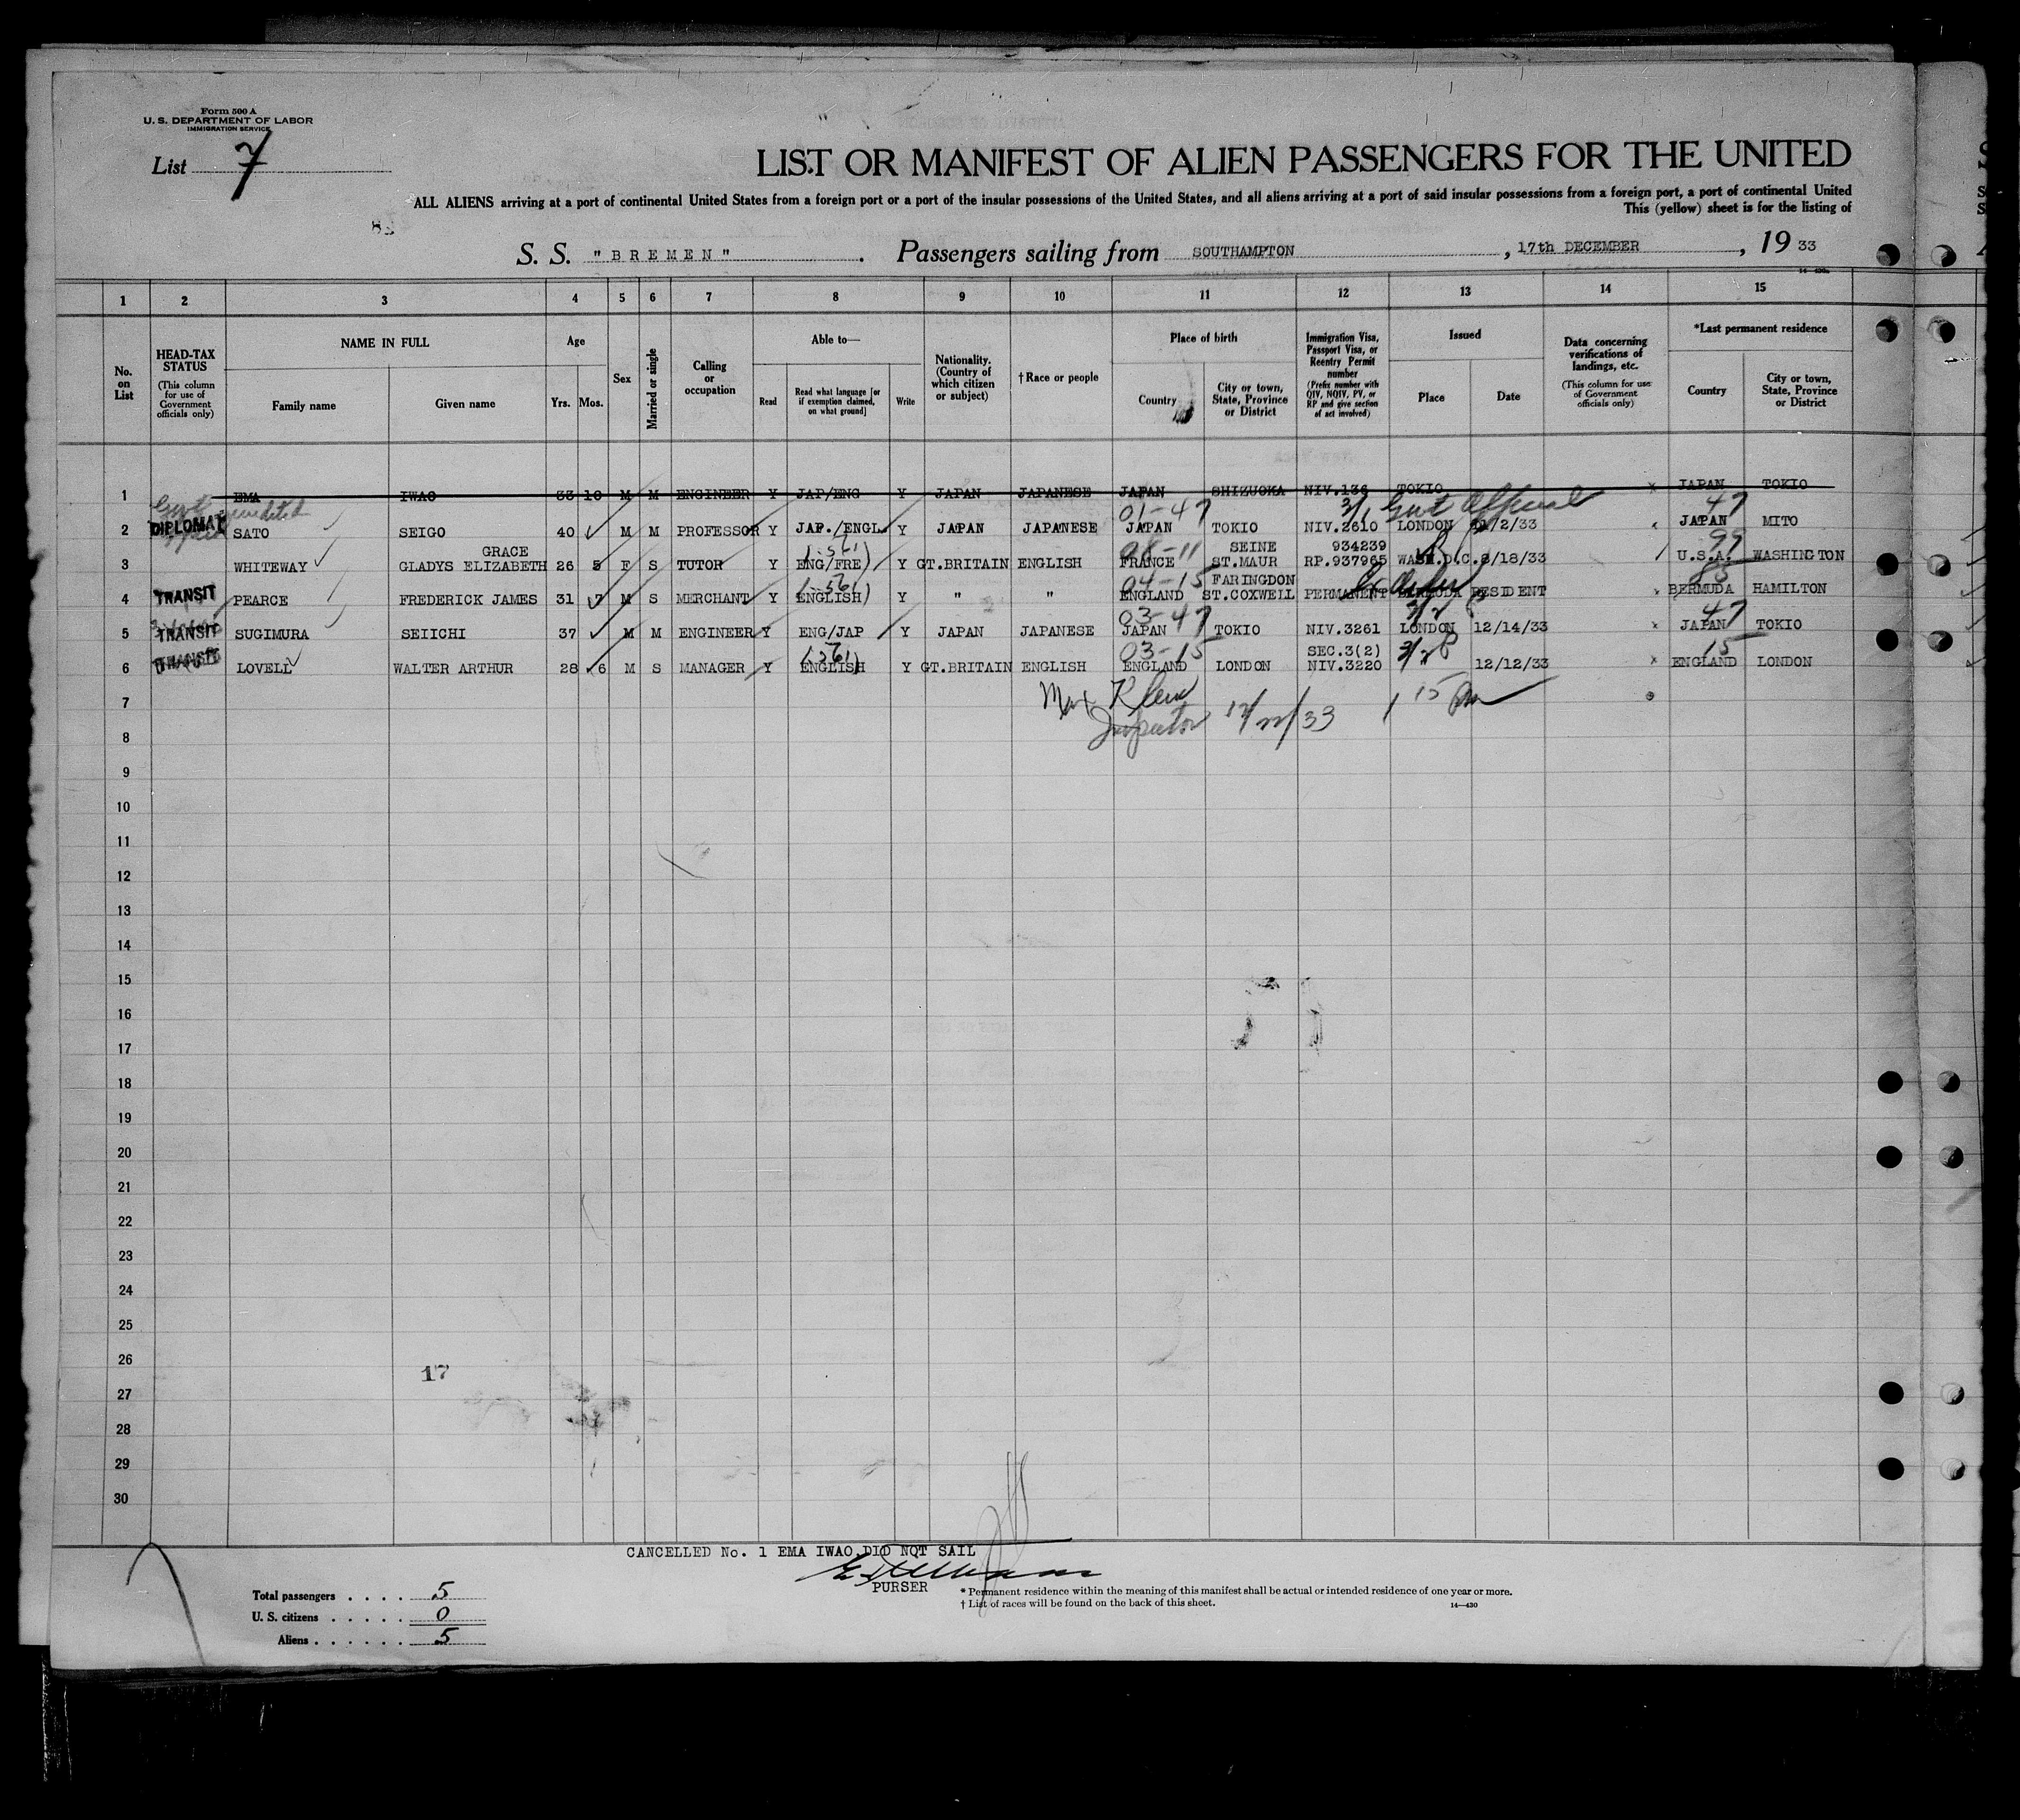 Form 500 A
U. S. DEPARTMENT OF LABOR
IMMIGRATION SERVICE
List 7
LIST OR MANIFEST OF ALIEN PASSENGERS FOR THE UNITED
ALL ALIENS arriving at a port of continental United States from a foreign port or a port of the insular possessions of the United States, and all aliens arriving at a port of said insular possessions from a foreign port, a port of continental United
This (yellow) sheet is for the listing of
S. S. "BREMEN". Passengers sailing from SOUTHAMPTON, 17th DECEMBER, 1933
1 2 3 4 5 6 7 8 9 10 11 12 13 14 15
No. on List
HEAD-TAX STATUS (This column for use of Government officials only)
NAME IN FULL
Family name
Given name
Age
Yrs. Mos.
Sex
Married or single
Calling or occupation
Able to—
Read
Read what language [or if exemption claimed, on what ground]
Write
Nationality. (Country of which citizen or subject)
†Race or people
Place of birth
Country
City or town, State, Province or District
Immigration Visa, Passport Visa, or Reentry Permit number
(Prefix number with QIV, NQIV, PV, or RP and give section of act involved)
Issued
Place
Date
Data concerning verifications of landings, etc.
(This column for use of Government officials only)
*Last permanent residence
Country
City or town, State, Province or District
1 EMA IWAO 33 10 M M ENGINEER Y JAP/ENG Y JAPAN JAPANESE JAPAN SHIZUOKA NIV.136 TOKIO x JAPAN TOKIO
Govt 01-47 3/1 Govt Official 47
2 DIPLOMAT SATO SEIGO 40 M M PROFESSOR Y JAP./ENGL. Y JAPAN JAPANESE JAPAN TOKIO NIV.2610 LONDON 11/2/33 JAPAN MITO
GRACE 08-11 SEINE 934239 99
3 WHITEWAY GLADYS ELIZABETH 26 5 F S TUTOR Y ENG/FRE) Y GT.BRITAIN ENGLISH FRANCE ST.MAUR RP.937965 WASH.D.C. 8/18/33 U.S.A. WASHINGTON
04-15 FARINGDON 85
4 TRANSIT PEARCE FREDERICK JAMES 31 7 M S MERCHANT Y ENGLISH) Y " " ENGLAND ST.COXWELL PERMANENT BERMUDA RESIDENT x BERMUDA HAMILTON
03-47 47
5 TRANSIT SUGIMURA SEIICHI 37 M M ENGINEER Y ENG/JAP Y JAPAN JAPANESE JAPAN TOKIO NIV.3261 LONDON 12/14/33 x JAPAN TOKIO
03-15 SEC.3(2) 15
6 TRANSIT LOVELL WALTER ARTHUR 28 6 M S MANAGER Y ENGLISH Y GT.BRITAIN ENGLISH ENGLAND LONDON NIV.3220 12/12/33 x ENGLAND LONDON
7
Max Klein
Inspector 12/22/33 1 15 Pm
8
9
10
11
12
13
14
15
16
17
18
19
20
21
22
23
24
25
26
17
27
28
29
30
CANCELLED No. 1 EMA IWAO DID NOT SAIL
PURSER
Total passengers . . . . 5
U. S. citizens . . . . . 0
Aliens . . . . . . 5
* Permanent residence within the meaning of this manifest shall be actual or intended residence of one year or more.
† List of races will be found on the back of this sheet.
14—430